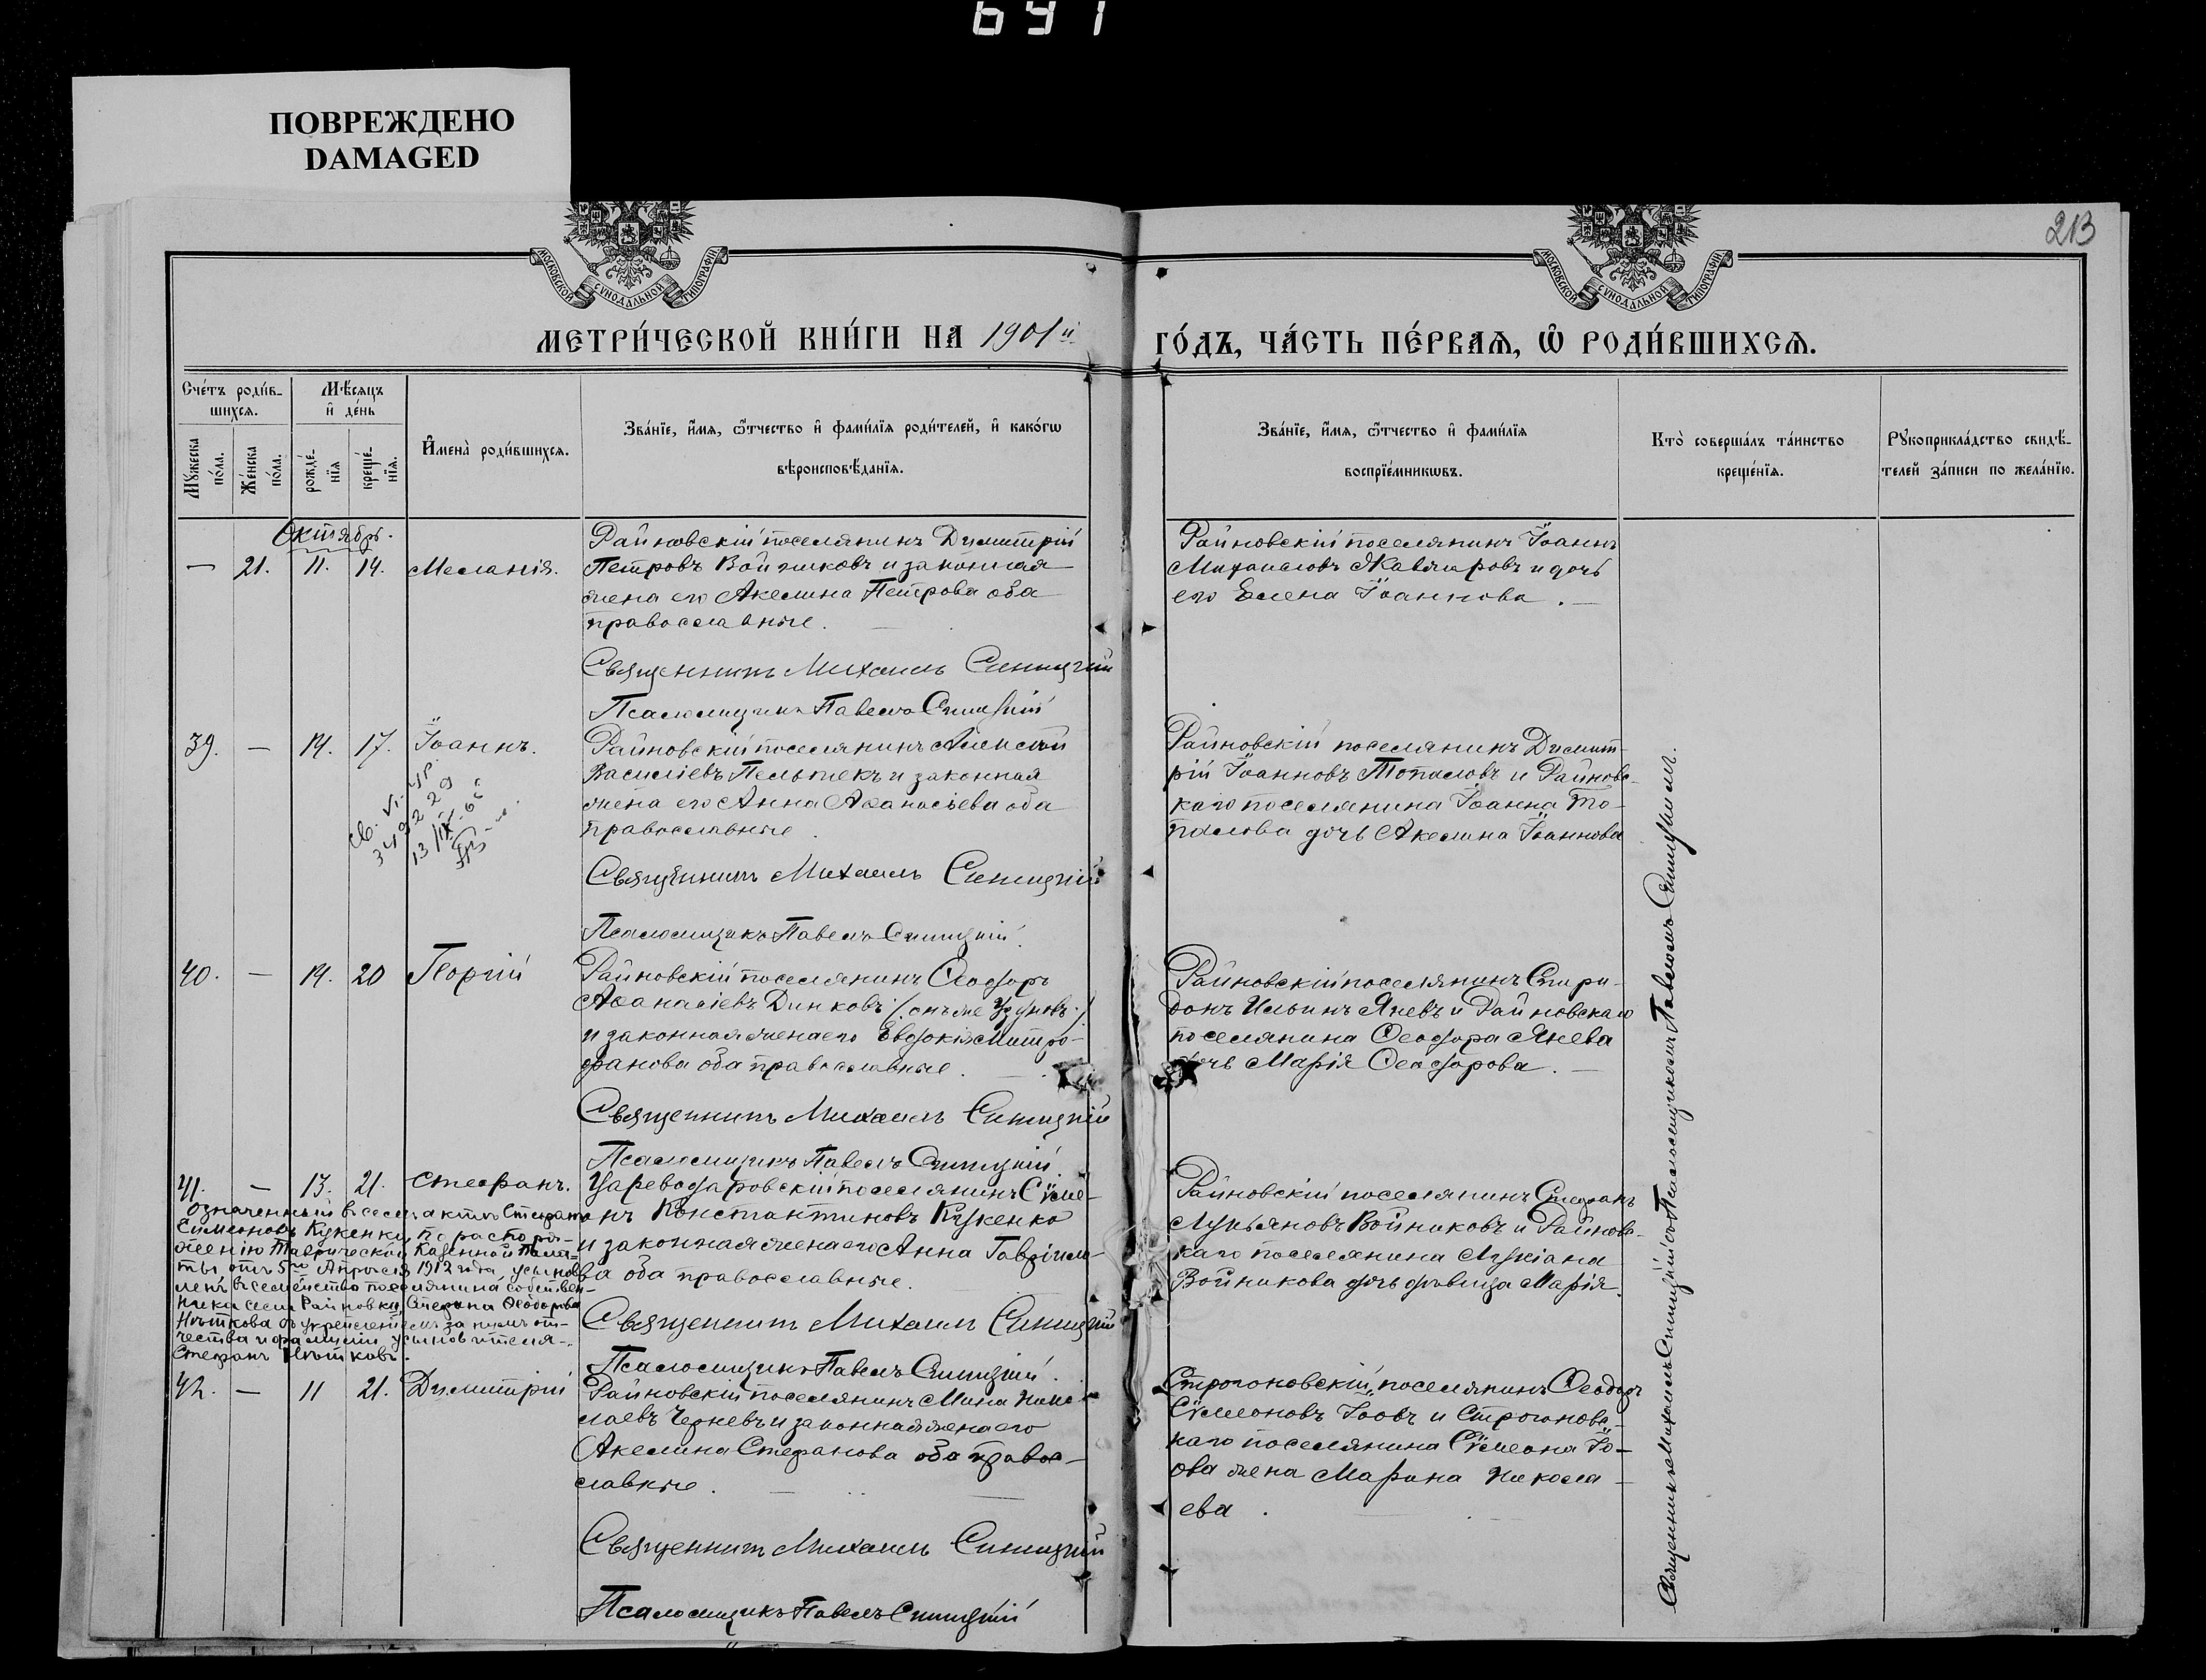 691
ПОВРЕЖДЕНО
DAMAGED
213
МОСКОВСКОЙ СѴНОДАЛЬНОЙ ТИПОГРАФІИ
МОСКОВСКОЙ СѴНОДАЛЬНОЙ ТИПОГРАФІИ
МЕТРИ́ЧЕСКОЙ КНИ́ГИ НА 1901й
ГО́ДЪ, ЧА́СТЬ ПЕ́РВАѦ, Ѡ҆ РОДИ́ВШИХСѦ.
Сче́тъ роди́в-
шихсѧ.
Мѣ́сѧцъ
и҆ де́нь
Мꙋ́жеска
по́ла.
Же́нска
по́ла.
рожде́-
нїѧ
креще́-
нїѧ.
И҆мена̀ роди́вшихсѧ.
Зва́нїе, и҆́мѧ, ѻ҆́тчество и҆ фами́лїѧ роди́телей, и҆ како́гѡ
вѣроисповѣ́данїѧ.
Зва́нїе, и҆́мѧ, ѻ҆́тчество и҆ фами́лїѧ
воспрїе́мникѡвъ.
Кто̀ соверша́лъ та́инство
креще́нїѧ.
Рꙋкоприкла́дство свидѣ́-
телей за́писи по жела́нїю.
Октябрь.
— 21. 11. 14. Меланія.
Райновскій поселянинъ Димитрій
Петровъ Войниковъ и законная
жена его Акелина Петрова оба
православные.
Священникъ Михаилъ Синицкій
Псаломщикъ Павелъ Синицкій
Райновскій поселянинъ Іоаннъ
Михаиловъ и дочь
его Елена Іоаннова.
39. — 14. 17. Іоаннъ.
349229
Райновскій поселянинъ Алексѣй
Василіевъ Пельтекъ и законная
жена его Анна Аѳанасіева оба
православные.
Священникъ Михаилъ Синицкій
Псаломщикъ Павелъ Синицкій.
Райновскій поселянинъ Димит-
рій Іоанновъ Топаловъ и Райновс-
каго поселянина Іоанна То-
палова дочь Акелина Іоаннова
40. — 14. 20 Георгій
Райновскій поселянинъ Ѳеодоръ
Аѳанасіевъ Динковъ /: онъ же Узуновъ :/
и законная жена его Евдокія Митро-
фанова оба православные.
Священникъ Михаилъ Синицкій
Псаломщикъ Павелъ Синицкій.
Райновскій поселянинъ Спири-
донъ Ильинъ Яневъ и Райновскаго
поселянина Ѳеодора Янева
дочь Марія Ѳеодорова.
41. — 13. 21. Стефанъ.
Означенный въ семъ актѣ Стефанъ
Симеоновъ Кукенко, по распоря-
женію Таврической Казенной Пала-
ты отъ 5го Апрѣля 1912 года усынов-
ленъ въ семейство поселянина собствен-
ника села Райновки Стефана Ѳеодорова
Нѣткова съ укрѣпленіемъ за нимъ от-
чества и фамиліи усыновителя-.
Стефанъ Нѣтковъ.
Цареводаровскій поселянинъ Сѵме-
онъ Константиновъ Кукенко
и законная жена его Анна Гавріило-
ва оба православные.
Священникъ Михаилъ Синицкій
Псаломщикъ Павелъ Синицкій.
Райновскій поселянинъ Стефанъ
Лукьяновъ Войниковъ и Райновс-
каго поселянина Лукіана
Войникова дочь дѣвица Марія.
42. — 11 21. Димитрій
Райновскій поселянинъ Мина Нико-
лаевъ Черневъ и законная жена его
Акелина Стефанова оба право-
славные.
Священникъ Михаилъ Синицкій
Псаломщикъ Павелъ Синицкій
Строгоновскій поселянинъ Ѳеодоръ
Сѵмеоновъ Іововъ и Строгоновс-
каго поселянина Сѵмеона Іо-
ова жена Марина Никола-
ева.
Священникъ Михаилъ Синицкій съ Псаломщикомъ Павломъ Синицкимъ.